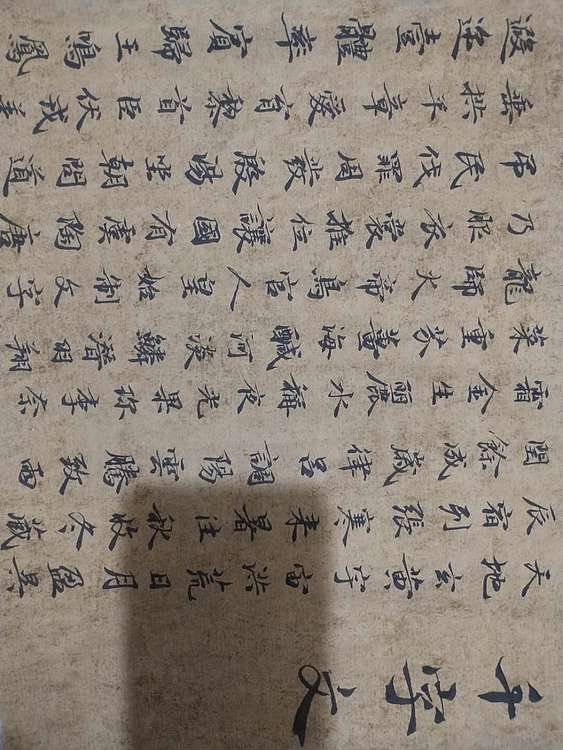 千字文
天地玄黃宇宙洪荒日月盈昃
辰宿列張寒來暑往秋收冬藏
閏餘成歲律呂調陽雲騰致雨
霜金生麗水稱夜光果珍李柰
菜重芥薑海鹹河淡鱗潛羽翔
龍師火帝鳥官人皇始制文字
乃服衣裳推位讓國有虞陶唐
弔民伐罪周發殷湯坐朝問道
垂拱平章愛育黎首臣伏戎羌
遐邇壹體率賓歸王鳴鳳